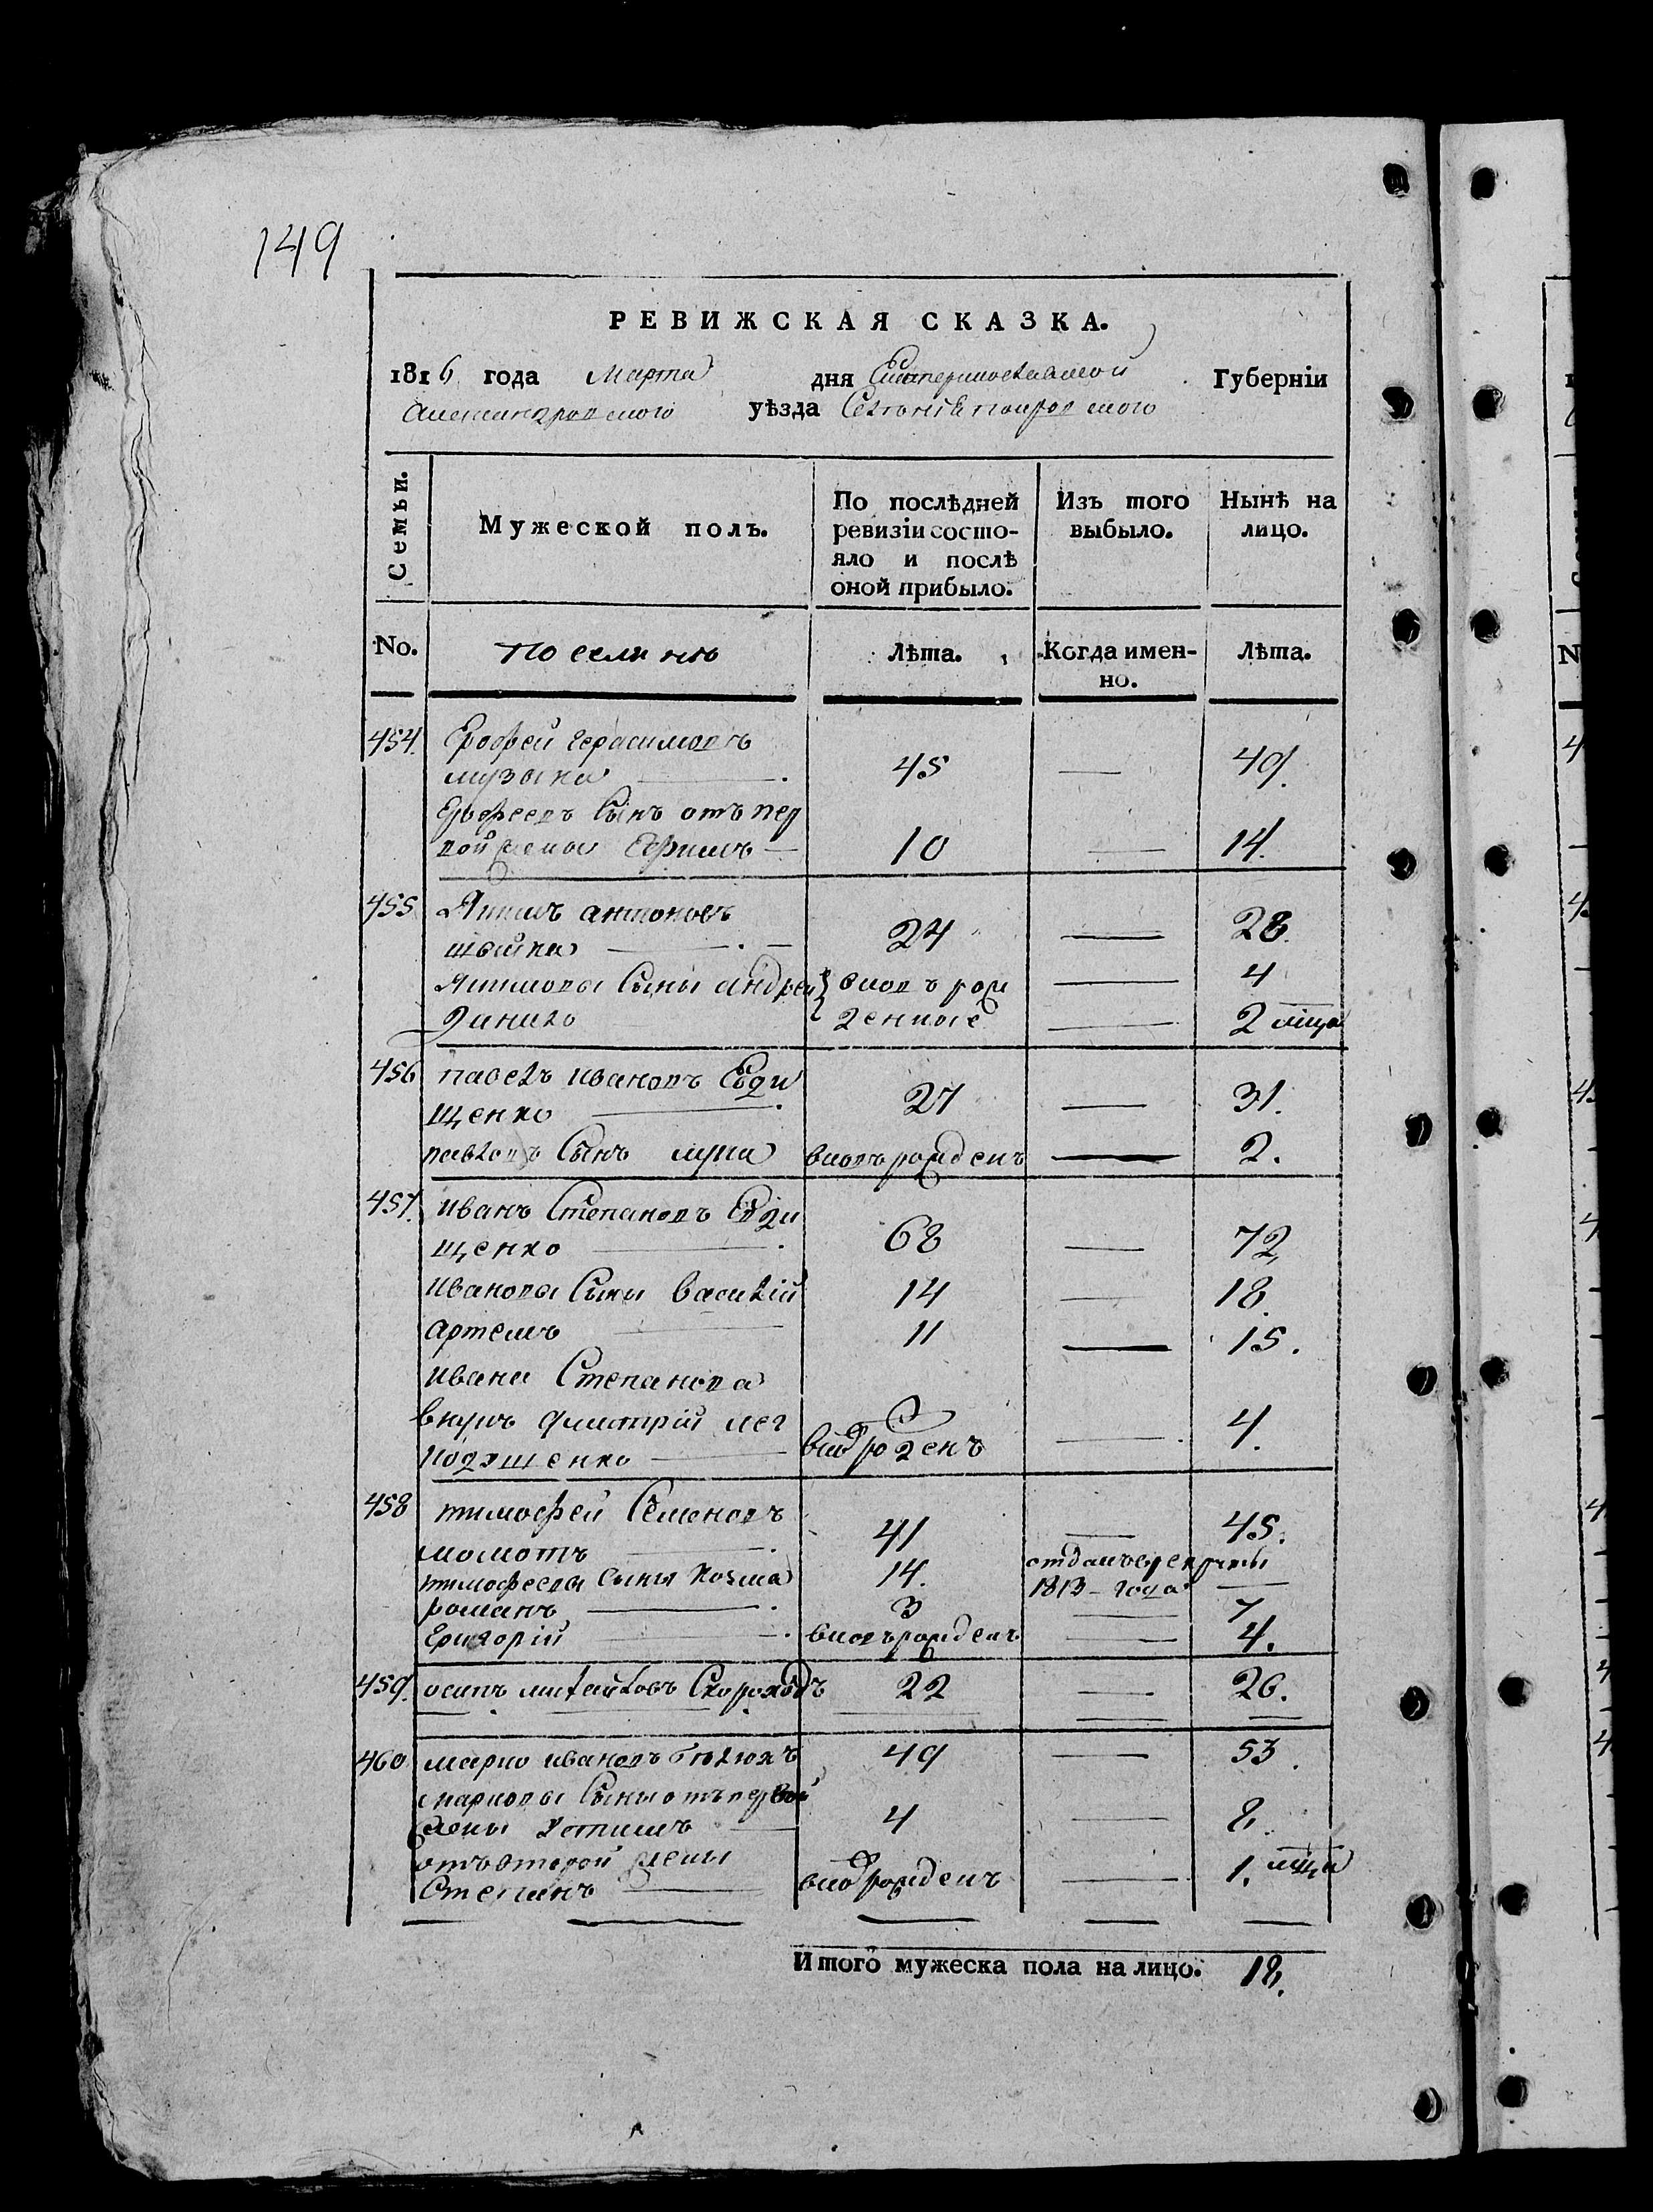 149
РЕВИЖСКАЯ СКАЗКА.
1816 года Марта дня Екатеринославской Губерніи
Александровского уѣзда Селенія Покровского
Семьи. Мужеской полъ. По послѣдней ревизіи состо- яло и послѣ оной прибыло. Изъ того выбыло. Нынѣ на лицо.
No. Поселяне Лѣта. Когда имен- но. Лѣта.
454. Ерофей герасимовъ
музыка 45 — 49.
Ерофеевъ Сынъ отъ пер
вой жены Ефимъ — 10 — 14.
455 Якимъ антоновъ
швайка — 24 — 28.
Якимовы Сыны андрей } вновь рож — 4
данило } денные — 2 мца
456 павелъ ивановъ
щенко — 27 — 31.
павловъ Сынъ лука вновъ рожденъ — 2.
457. иванъ Степановъ
щенко — 68 — 72
Ивановы Сыны василій 14 — 18.
артемъ — 11 — 15.
ивана Степанова
внукъ димитрій
— 4.
458 тимофей Семеновъ
момотъ — 41 — 45.
тимофеевы сыны козма 14. отданъ в рекруты
1813 – года —
романъ — 3 — 7
Григорій — вновъ рожденъ — 4.
459. осипъ михайловъ Скороходъ 22 — 26.
460 марко ивановъ 49 — 53.
марковы Сыны отъ первой
жены устимъ — 4 — 8.
отъ второй жены
Степанъ — рожденъ — 1. мца
Итого мужеска пола на лицо. 18.